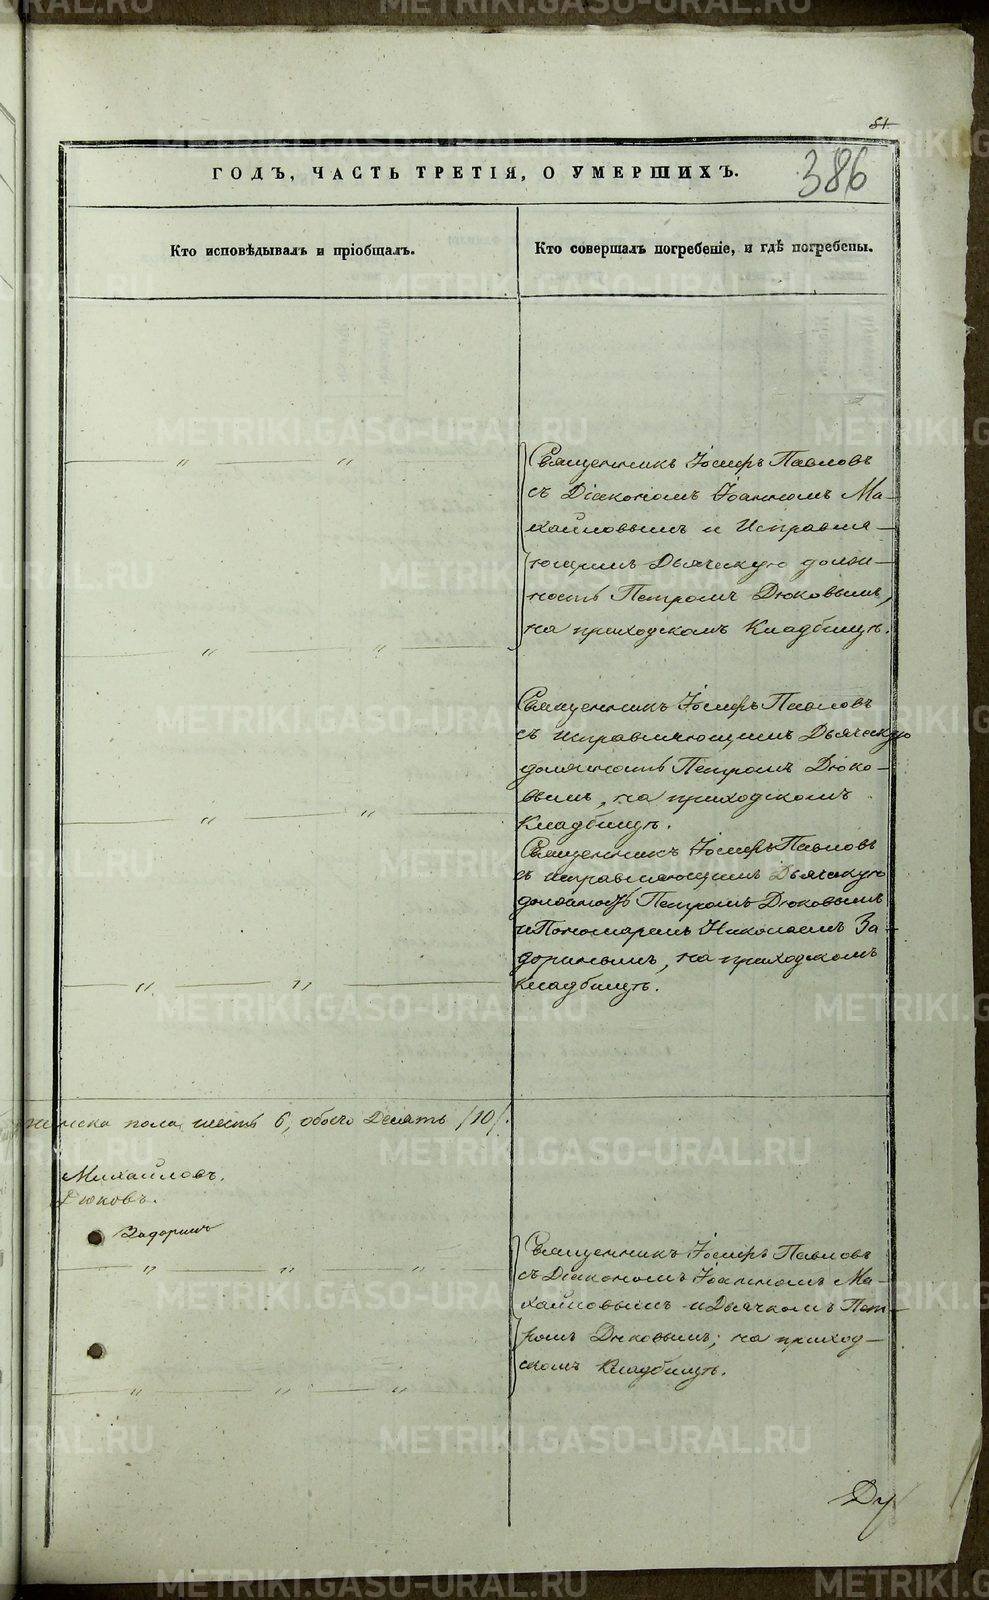 81
ГОДЪ, ЧАСТЬ ТРЕТІЯ, О УМЕРШИХЪ.
386
Кто исповѣдывалъ и пріобщалъ.
Кто совершалъ погребеніе, и гдѣ погребены.
Священникъ Іосифъ Павловъ
съ Діакономъ Іоанномъ Ми-
хайловымъ и Исправля-
ющимъ Дьяческую долж-
ность Петромъ Дюковымъ,
на приходскомъ Кладбищѣ.
Священникъ Іосифъ Павловъ
съ исправляющимъ Дьяческую
должность Петромъ Дюко-
вымъ, на приходскомъ
Кладбищѣ.
Священникъ Іосифъ Павловъ
съ исправляющимъ Дьяческую
должность Петромъ Дюковымъ
и Пономаремъ Николаемъ За-
доринымъ, на приходскомъ
кладбищѣ.
женска пола шесть 6, обоего Десять /10/.
Михайловъ.
Дюковъ.
Задоринъ
Священникъ Іосифъ Павловъ
съ Діакономъ Іоанномъ Ми-
хайловымъ и Дьячкомъ Пет-
ромъ Дюковымъ; на приход-
скомъ Кладбищѣ.
Ду
METRIKI.GASO-URAL.RU